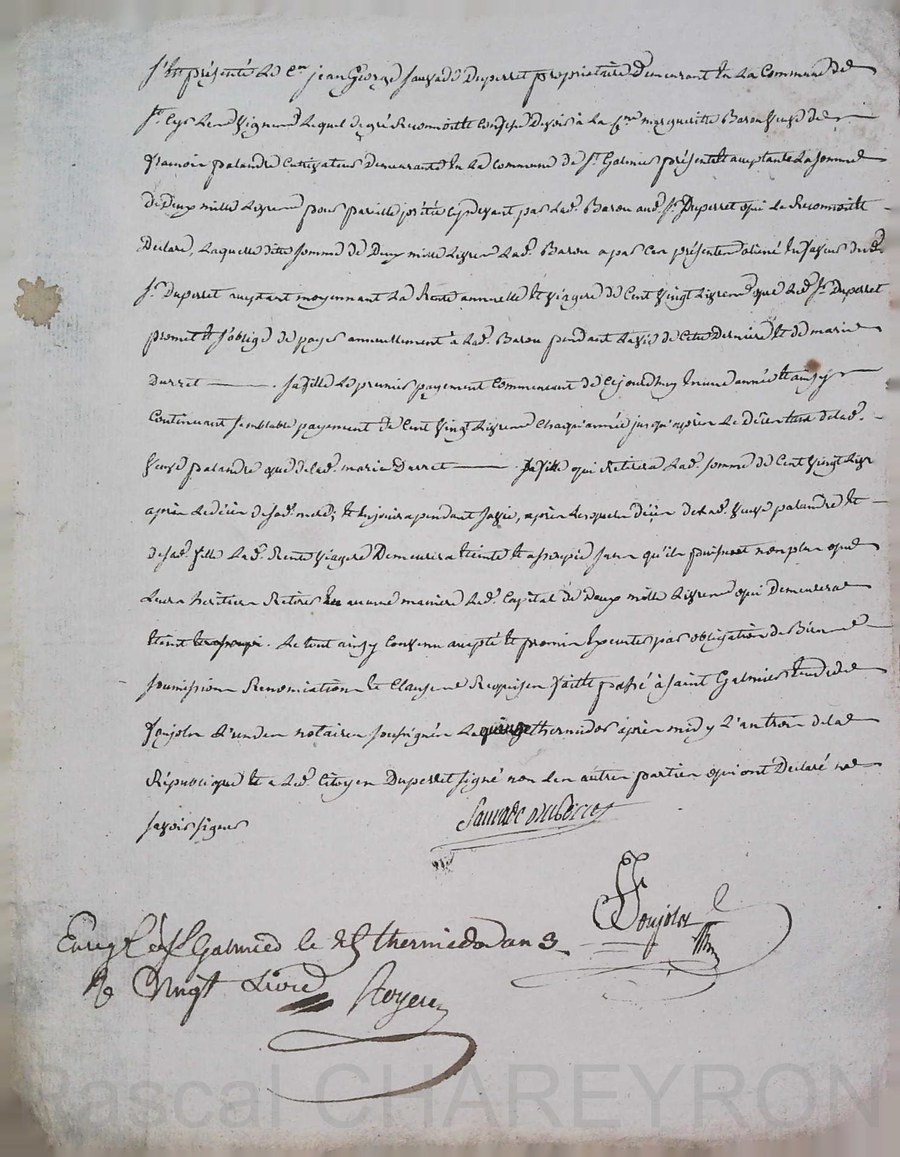 S'est présenté le Cen jean George Sauvade Duperret propriétaire Demeurant En La Commune De
St. Cyr Les Vignes Lequel de gré Reconnoitt Confesse Devoir à La Cne margueritte Barou Veuve de
palandre Cultivateur Demeurante En La Commune de St. Galmier présente acceptante La somme
de Deux mille Livres pour pareille prêtée cydevant par Lad. Barou aud. Sr. Duperret qui Le Reconnoitt
Declare, Laquelle ditte somme de Deux mille Livres Lad. Barou a par Ces présentes aliéné En faveur dud.
Sr. Duperret acceptant moyennant La Rente annuelle Et Viagere de Cent Vingt Livres que Led. Sr. Duperret
promet Et s'oblige de payer annuellement à Lad. Barou pendant La Vie de Cette Derniere Et de marie
Durret sa fille Le premier payement Commencant De Cejourdhuy En une année Et ainsy
Continuant semblable payement de Cent Vingt Livres Chaque année jusqu'après Le Décès tant de Lad.
Veuve palandre que de Lad. marie Durret sa fille qui Retirera Lad. somme de Cent Vingt Livr
après Le décès de sad. mere, Et toujours pendant sa Vie, après Lesquels décès de Lad. Veuve palandre Et
de sad. fille Lad. Rente Viagere Demeurera Eteinte Et assoupie sans qu'ils puissent non plus que
Leurs heritiers Retirer En aucune maniere Led. Capital de Deux mille Livres qui Demeurera
Eteint Et assoupi. Le tout ainsy Convenu accepté Et promis Executer par obligation De Biens
soumissions Renonciations Et Clauses Requises faitte passé à Saint Galmier Etude de
Poujolas L'un des notaires soussignés Le quinze thermidor après midy L'an trois de la
République Et a Led. Citoyen Duperret signé non Les autres parties qui ont Declaré ne
savoir signer
Sauvade duperret
Poujolas
Enreg. à St Galmier le thermidor an 3
R vingt Livres Royer
Pascal CHAREYRON